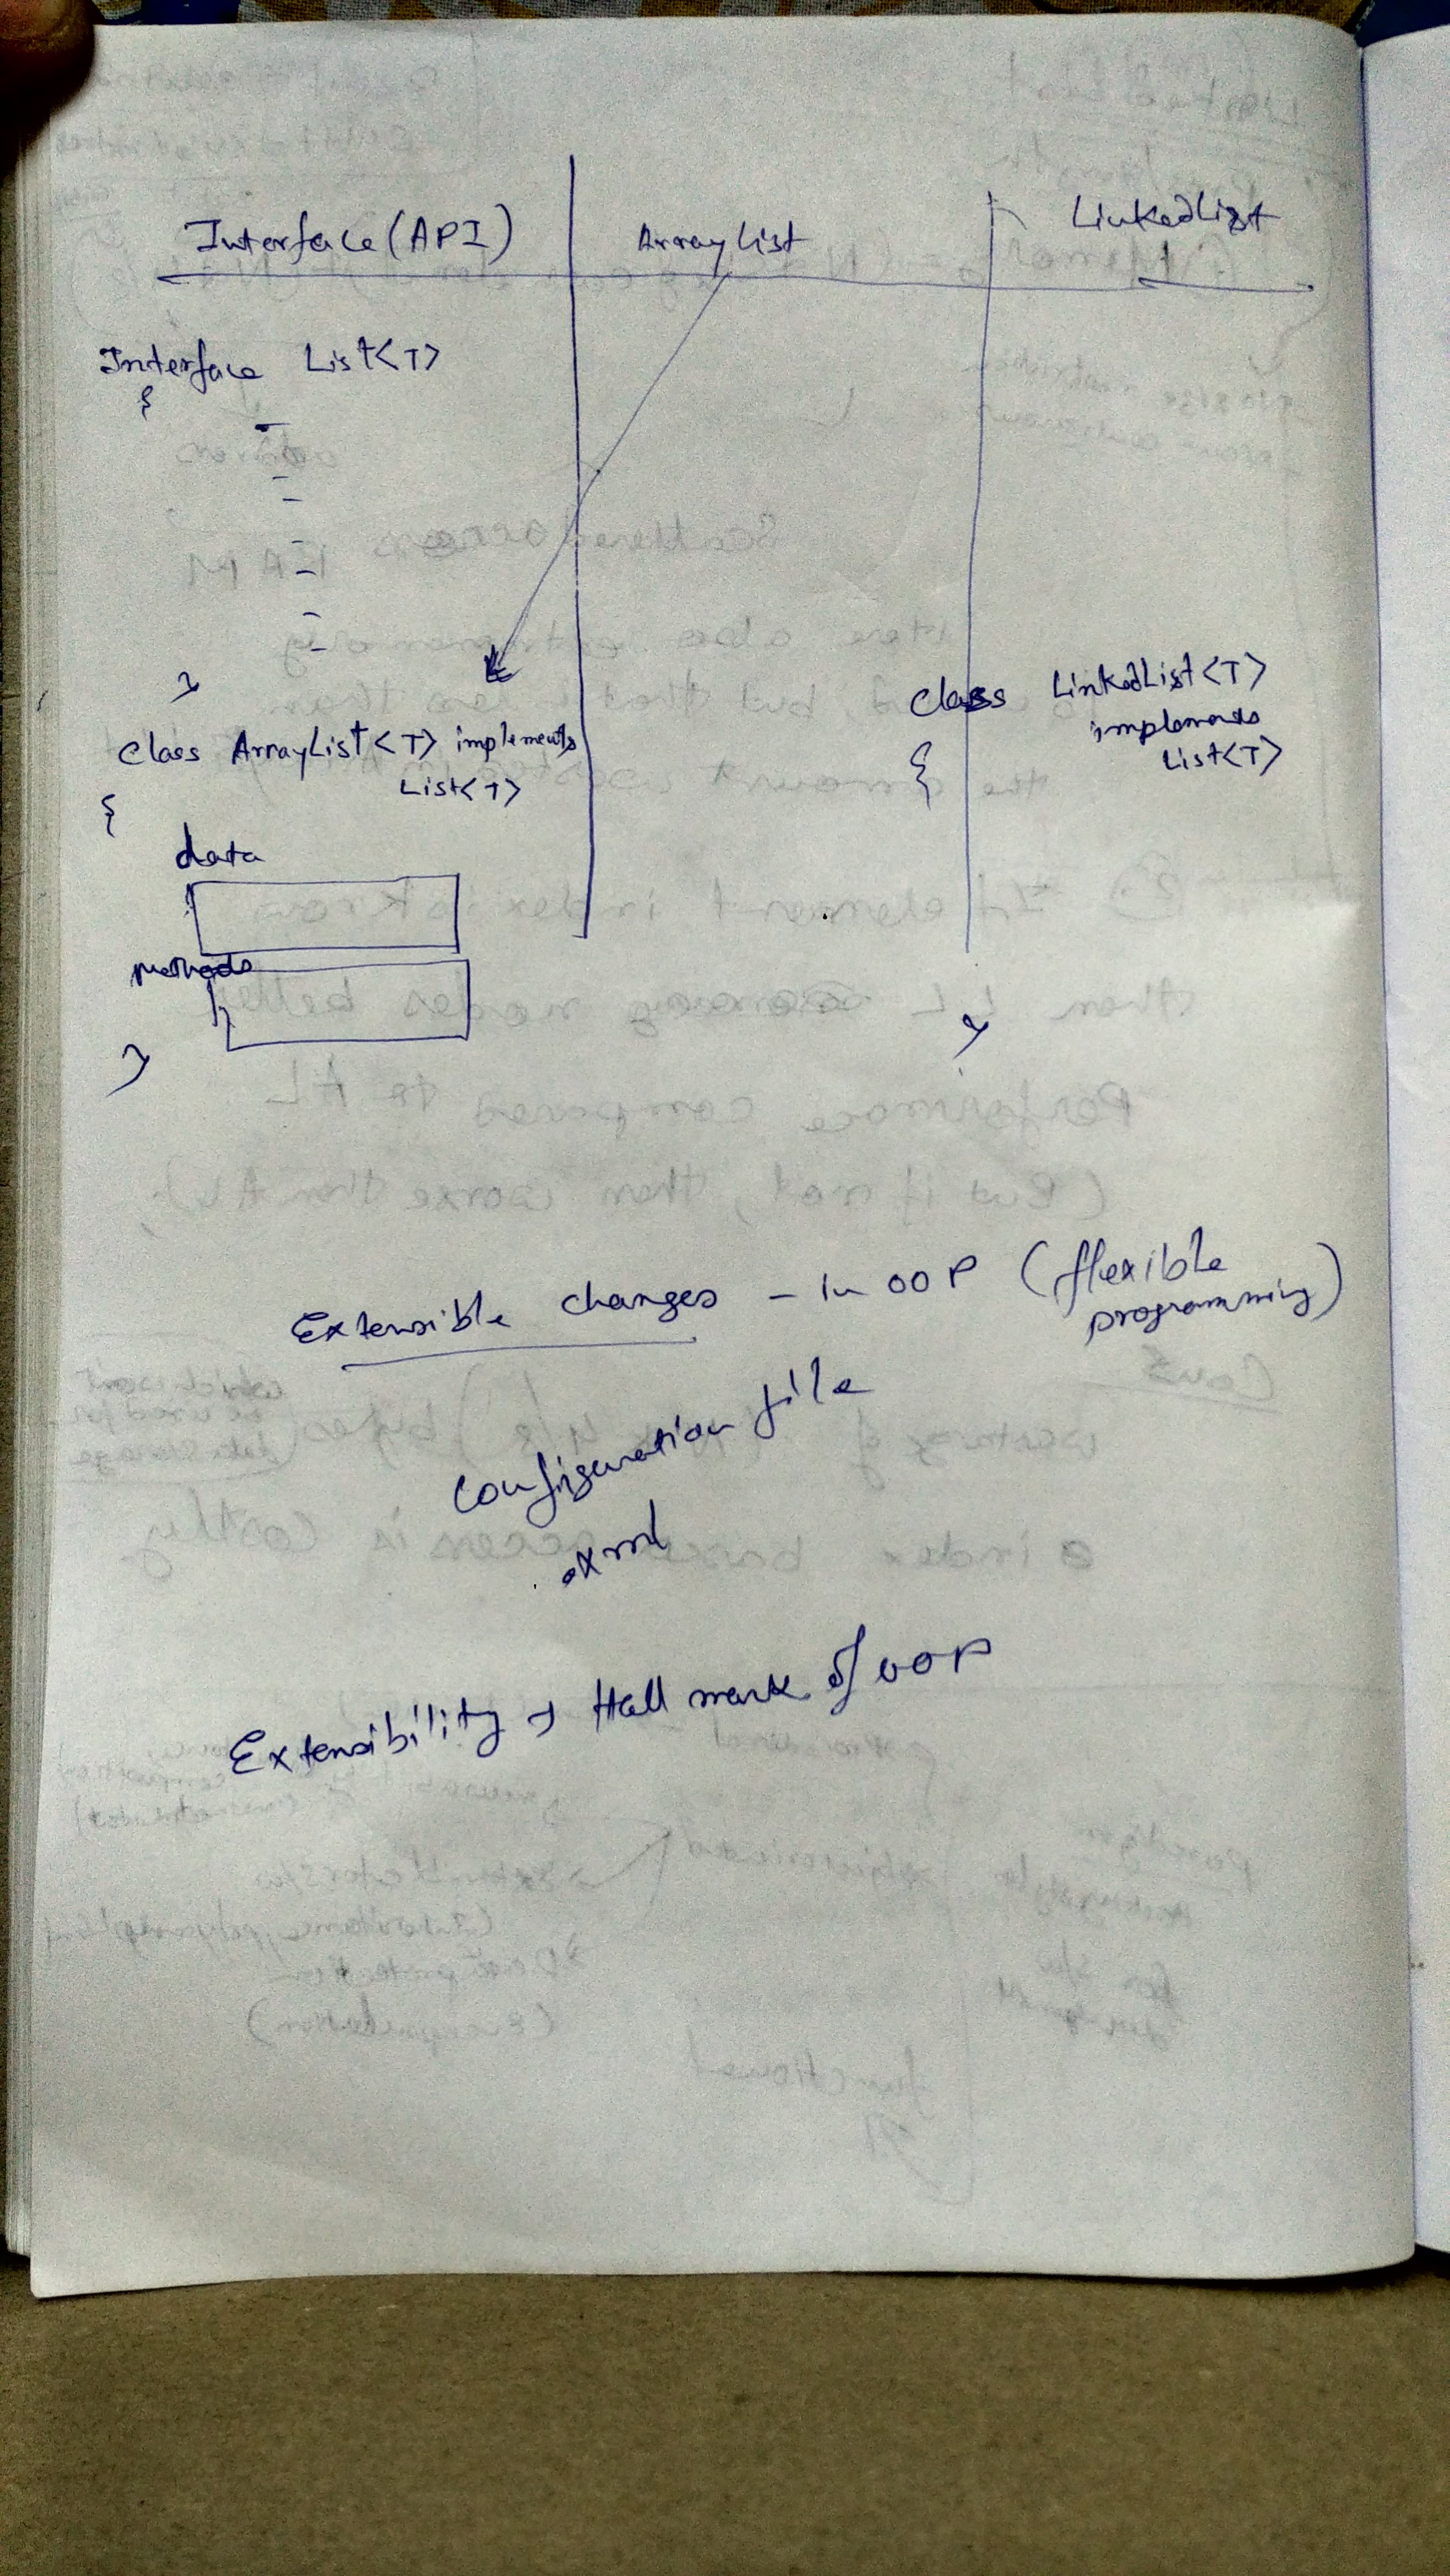 Interface (API) ArrayList LinkedList
Interface List<T>
{
}
Class ArrayList<T> implements
List<T>
{
data
methods
}
Class LinkedList<T>
implements
List<T>
{
}
Extensible changes - in OOP (flexible
programming)
Configuration file
.xml
Extensibility → Hall mark of OOP